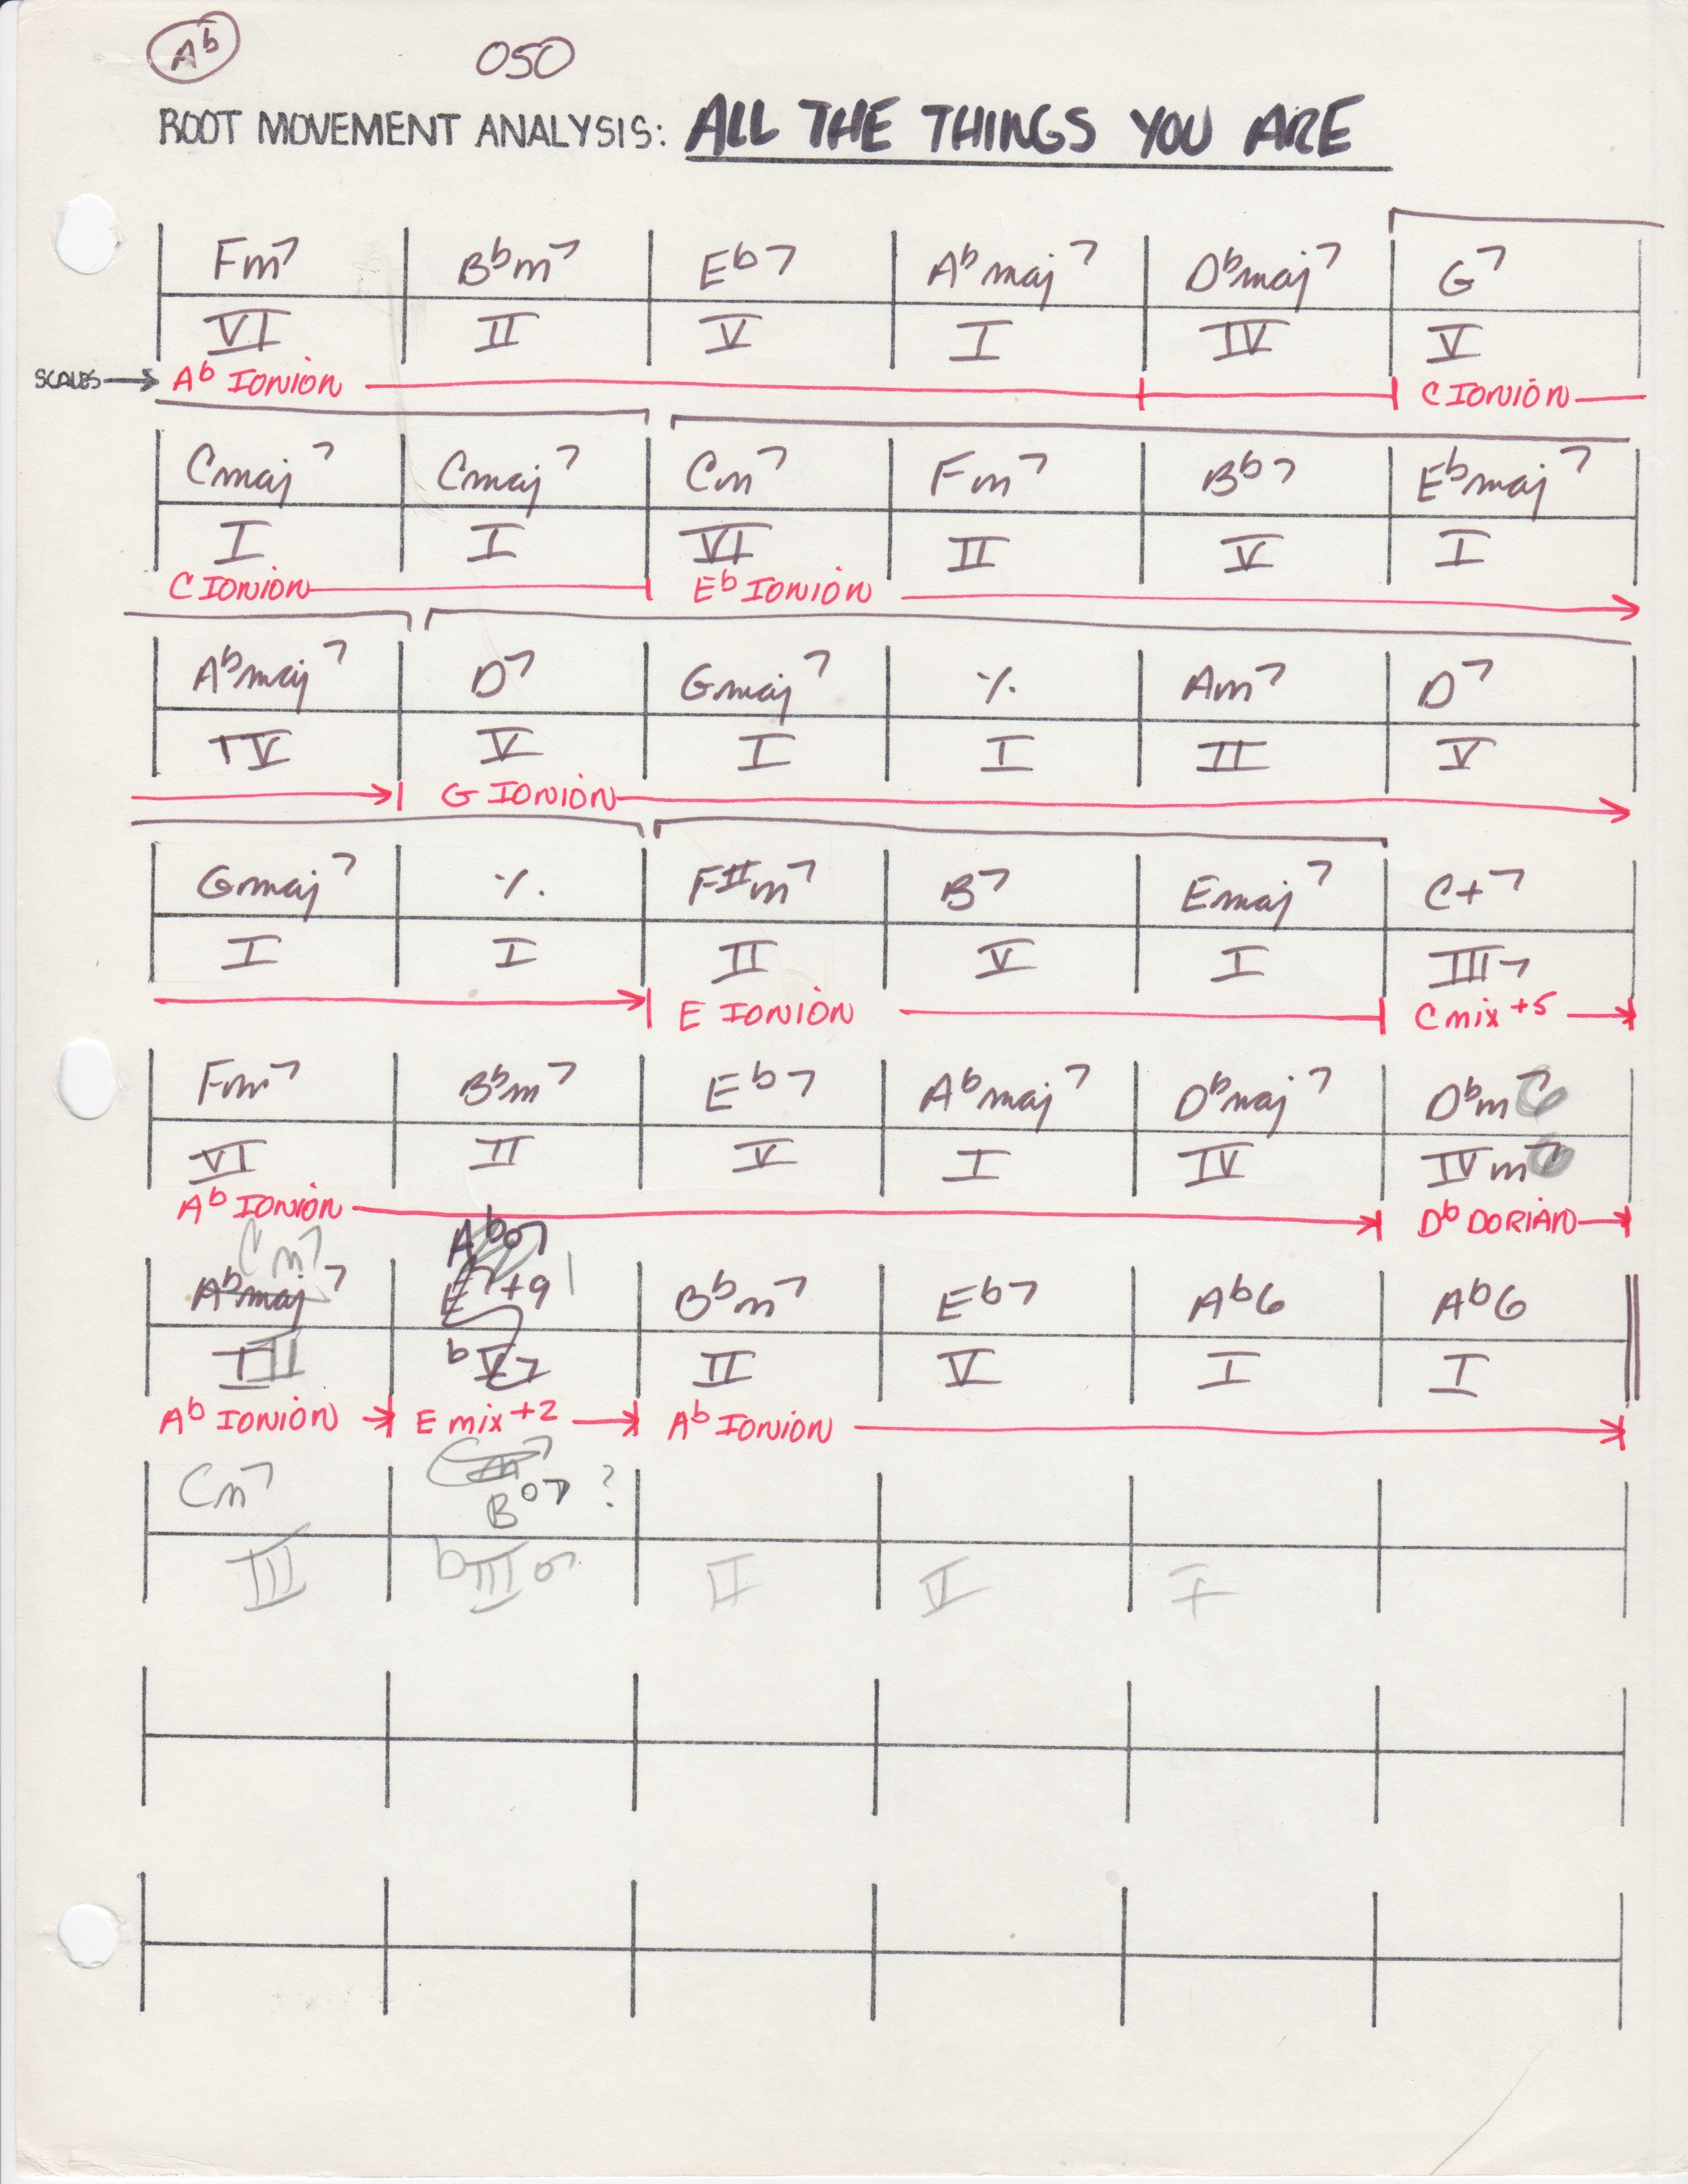 Ab 050
ROOT MOVEMENT ANALYSIS: ALL THE THINGS YOU ARE
Fm7 Bbm7 Eb7 Abmaj7 Dbmaj7 G7
VI II V I IV V
SCALES → Ab IONIÓN C IONIÓN
Cmaj7 Cmaj7 Cm7 Fm7 Bb7 Ebmaj7
I I VI II V I
C IONIÓN Eb IONIÓN
Abmaj7 D7 Gmaj7 ٪ Am7 D7
IV V I I II V
G IONIÓN
Gmaj7 ٪ F#m7 B7 Emaj7 C+7
I I II V I III7
E IONIÓN C mix+5
Fm7 Bbm7 Eb7 Abmaj7 Dbmaj7 Dbm
VI II V I IV IVm
Ab IONIÓN Db DORIAN
Cm7 Abo7
Abmaj7 E7+9 Bbm7 Eb7 Ab6 Ab6
III bV7 II V I I
Ab IONIÓN E mix+2 Ab IONIÓN
Cm7 Bo7 ?
III bIIIo7 II V I